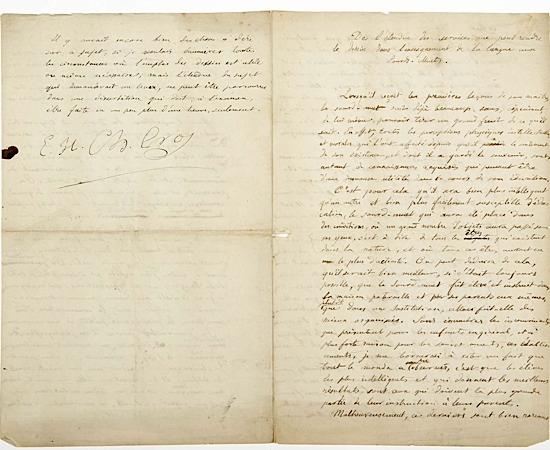 Il y aurait encore bien des choses à dire
sur ce sujet, si je voulais énumérer toutes
les circonstances où l'emploi des dessins est utile
ou même nécessaire, mais l'étendue du sujet
qui demanderait un livre, ne peut être parcourue
dans une dissertation qui doit, à l'examen,
être faite en un peu plus d'une heure, seulement.
E. H. Ch. Cros
De l'étendue des services que peut rendre
le dessin dans l'enseignement de la langue aux
Sourds-Muets.
Lorsqu'il reçoit les premières leçons de son maître,
le sourd-muet sait déjà beaucoup, sans, cependant
de lui même, pouvoir tirer un grand fruit de ce qu'il
sait. En effet, toutes les perceptions physiques intellectuelles
et morales qui l'ont affecté depuis le moment
de son existence, et dont il a gardé le souvenir, sont
autant de connaissances acquises qui peuvent être
d'une immense utilité dans le cours de son éducation.
C'est pour cela qu'il sera bien plus intelligent
qu'un autre et bien plus facilement susceptible d'édu-
cation, le sourd-muet qui aura été placé dans
des conditions, où un grand nombre d'objets aura passé sous
ses yeux, c'est à dire de tous les êtres qui existent
dans la nature, et où
le plus d'activité. On peut déduire de cela,
qu'il serait bien meilleur, si c'était toujours
possible, que le sourd-muet fût élevé et instruit dans
la maison paternelle et par ses parents eux mêmes,
plutôt que dans une Institution, celle-ci fût-elle des
mieux organisées. Sans énumérer les inconvénients
que présentent pour les enfants en général, et à
plus forte raison pour les sourds-muets, ces établis-
sements, je me bornerai à citer un fait que
tout le monde a observé, c'est que les élèves
les plus intelligents et qui donnent les meilleurs
résultats sont ceux qui doivent la plus grande
partie de leur instruction à leurs parents.
Malheureusement, ces derniers sont bien rarement